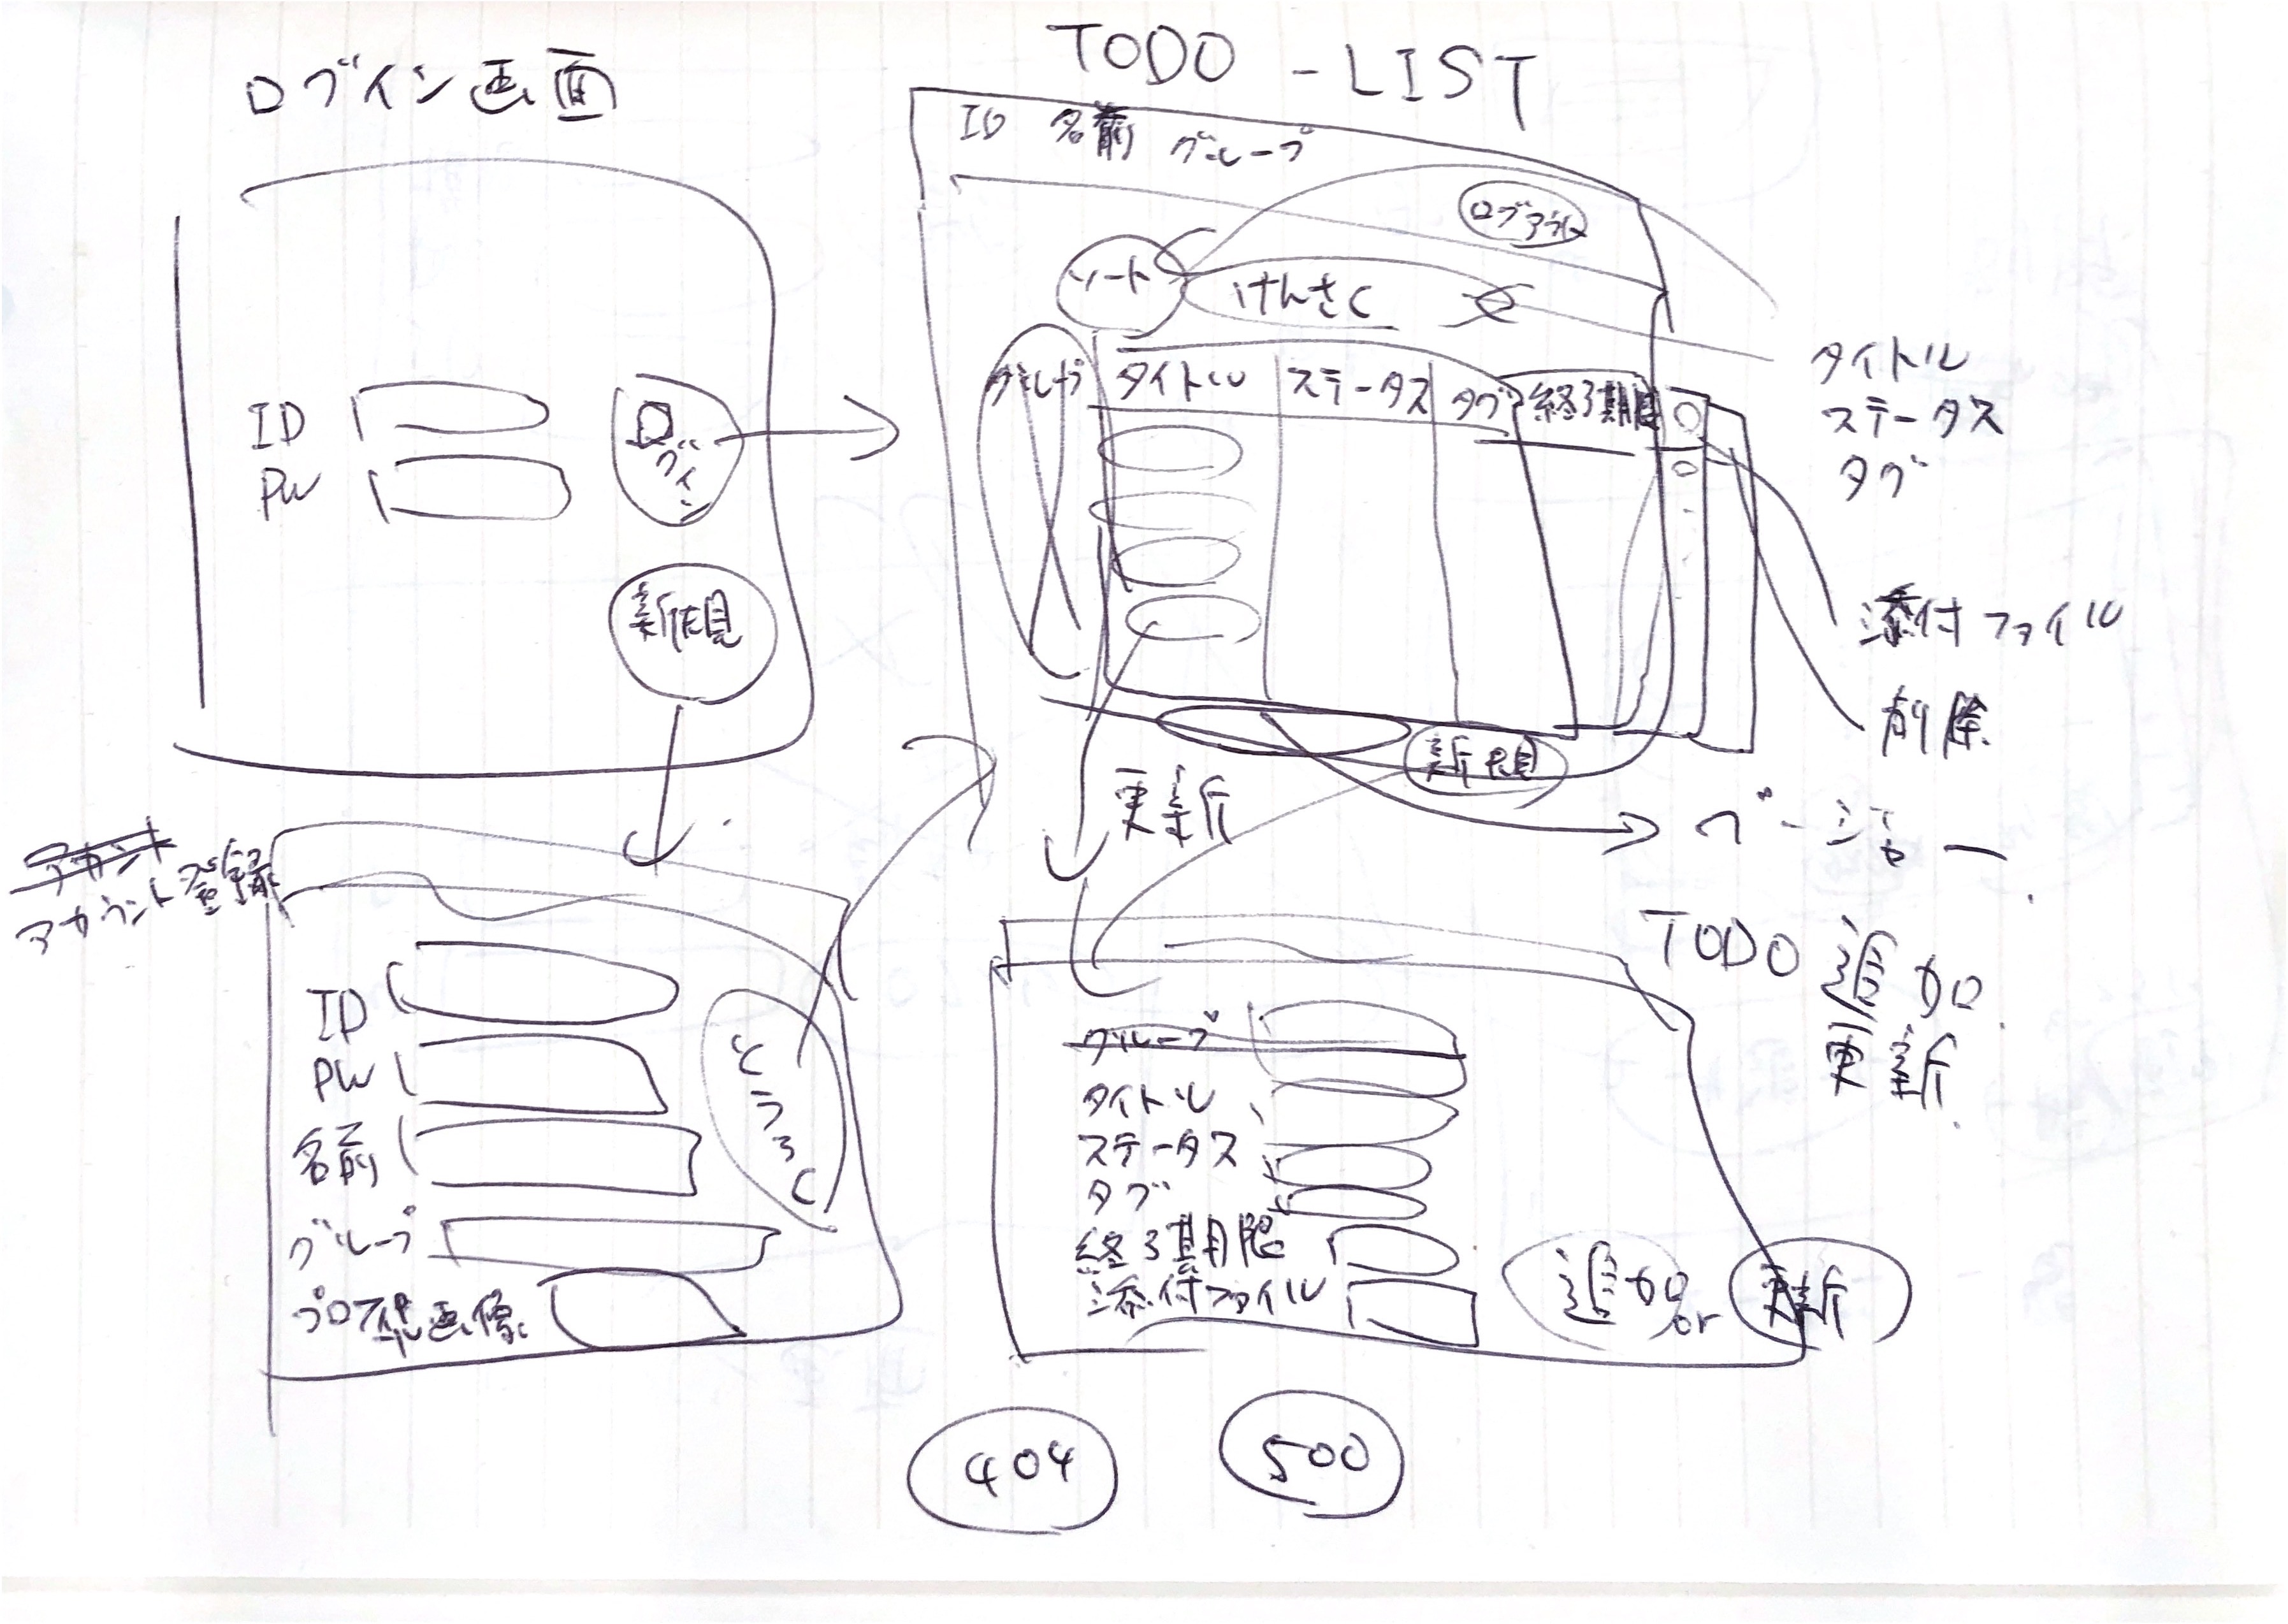 ログイン画面
ID
PW
ログイン
新規
TODO - LIST
ID 名前 グループ
ログアウト
ソート けんさく
グループ タイトル ステータス タグ 終了期限
タイトル
ステータス
タグ
添付ファイル
削除
更新
新規
ページャー
アカント
アカウント登録
ID
PW
名前
グループ
プロフ画像
とうろく
TODO 追加
更新
グループ
タイトル
ステータス
タグ
終了期限
添付ファイル
追加 or 更新
404
500